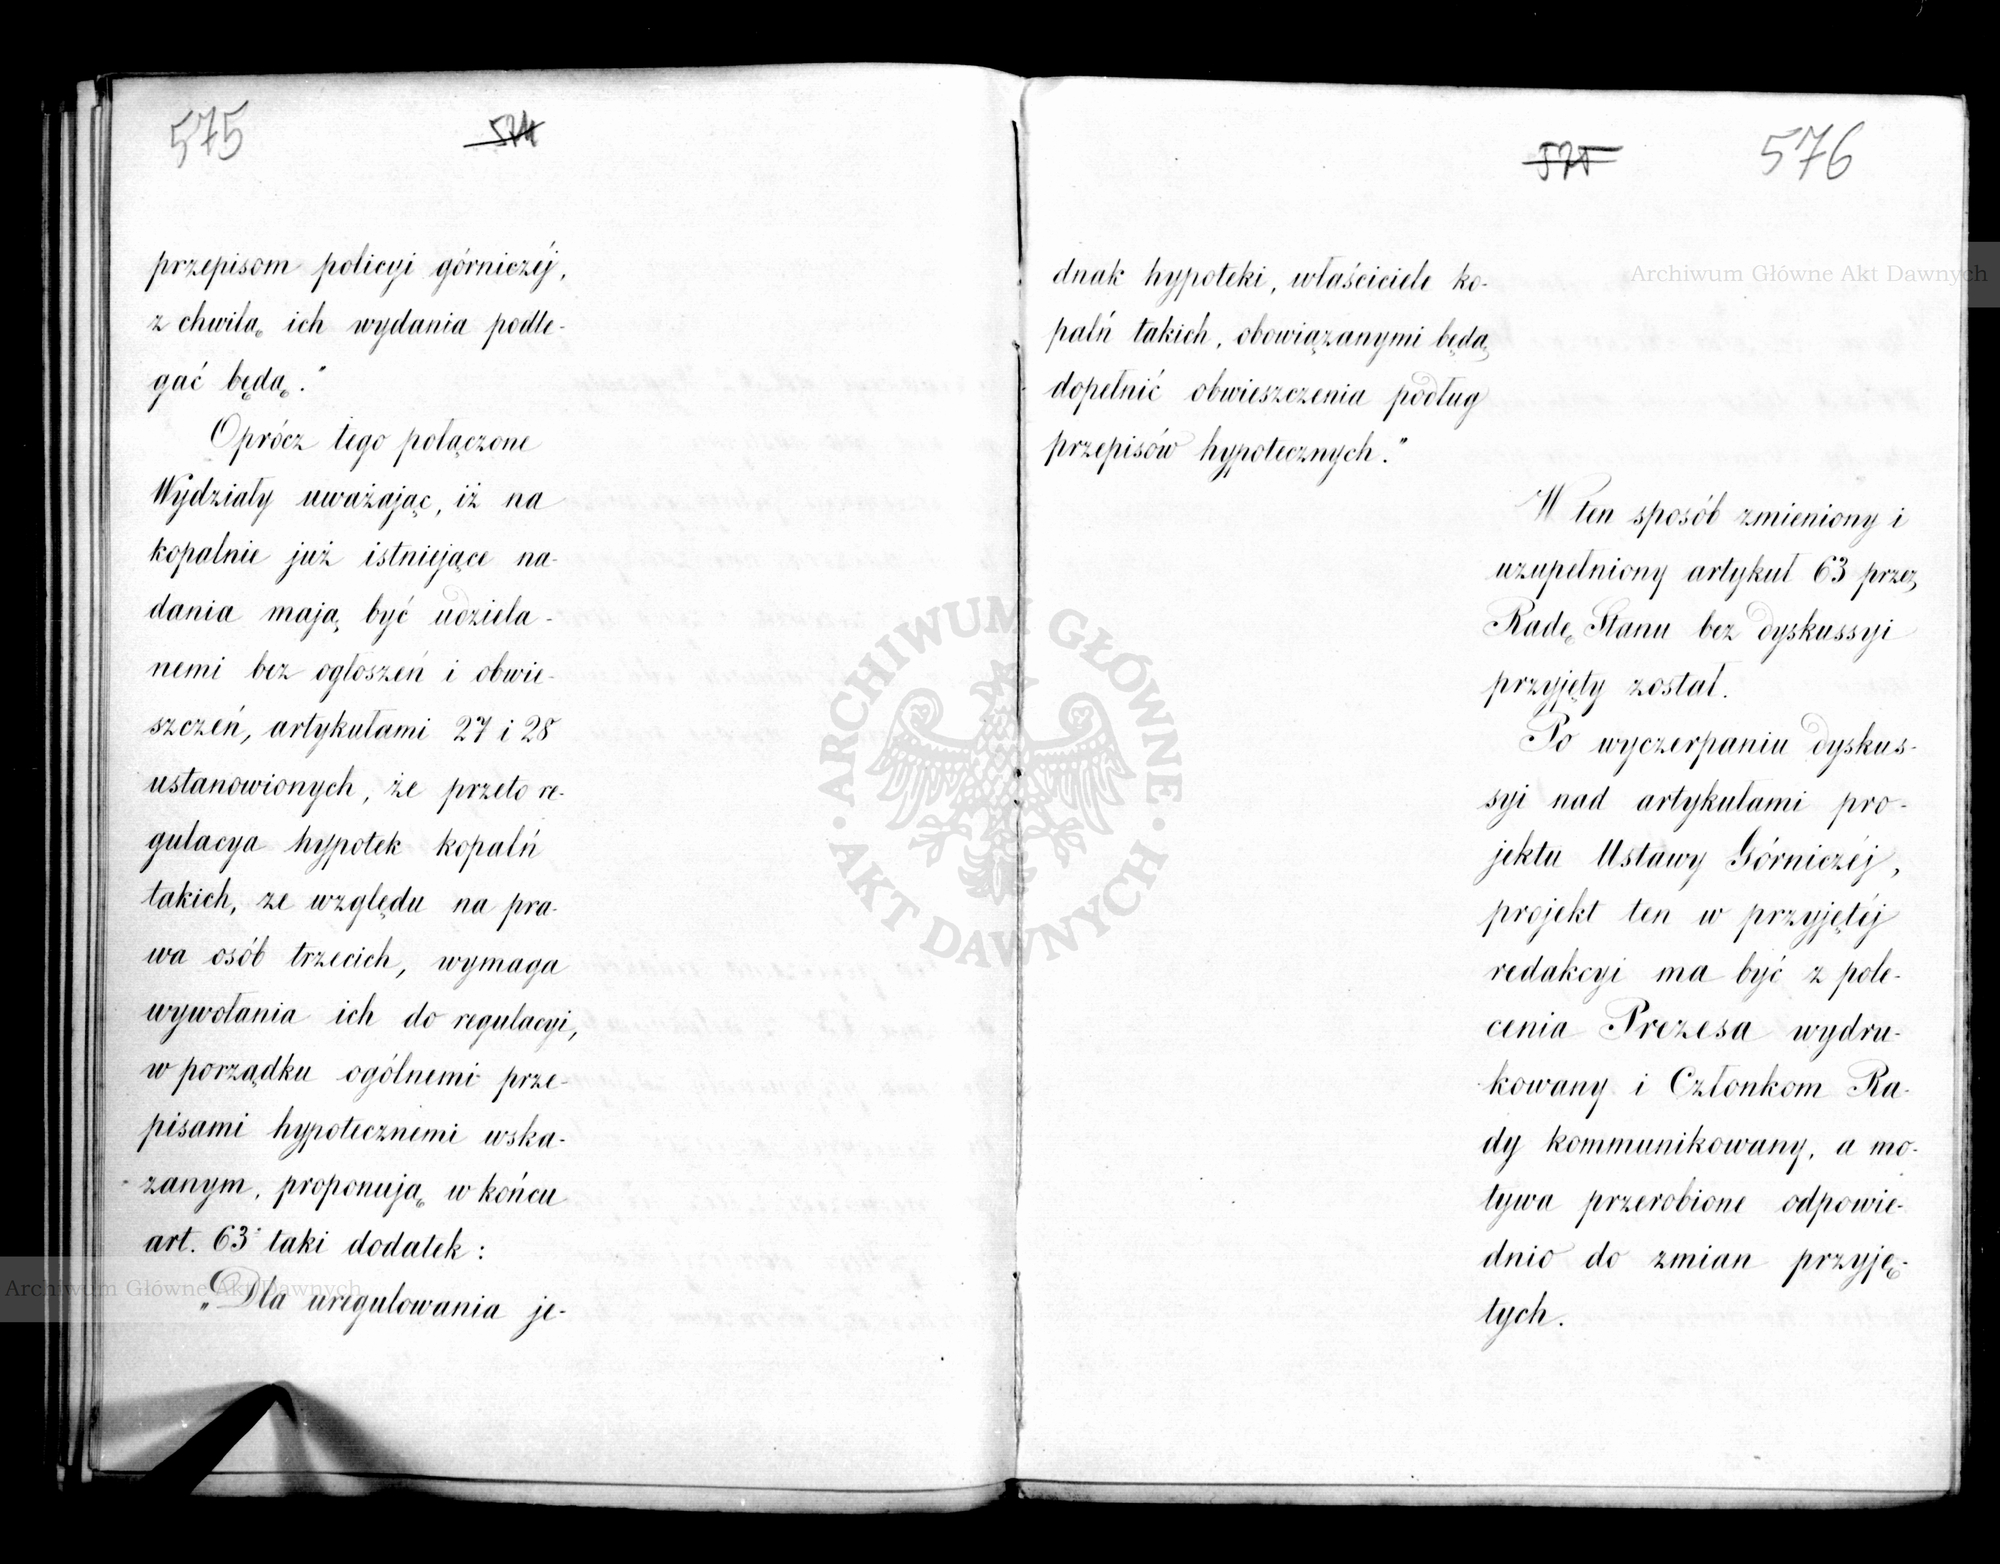 575
574
przepisom policyi górniczéj,
z chwilą ich wydania podle-
gać będą."
Oprócz tego połączone
Wydziały uważając, iż na
kopalnie już istniejące na-
dania mają być udziela-
nemi bez ogłoszeń i obwie-
szczeń, artykułami 27 i 28
ustanowionych, że przeto re-
gulacya hypotek kopalń
takich, ze względu na pra-
wa osób trzecich, wymaga
wywołania ich do regulacyi,
w porządku ogólnemi prze-
pisami hypotecznemi wska-
zanym, proponują w końcu
art. 63 taki dodatek:
„Dla uregulowania je-
575
576
dnak hypoteki, właściciele ko-
palń takich, obowiązanymi będą
dopełnić obwieszczenia podług
przepisów hypotecznych."
W ten sposób zmieniony i
uzupełniony artykuł 63 przez
Radę Stanu bez dyskussyi
przyjęty został.
Po wyczerpaniu dyskus-
syi nad artykułami pro-
jektu Ustawy Górniczéj,
projekt ten w przyjętéj
redakcyi ma być z pole-
cenia Prezesa wydru-
kowany i Członkom Ra-
dy kommunikowany, a mo-
tywa przerobione odpowie-
dnio do zmian przyję-
tych.
Archiwum Główne Akt Dawnych
Archiwum Główne Akt Dawnych
ARCHIWUM GŁÓWNE
AKT DAWNYCH